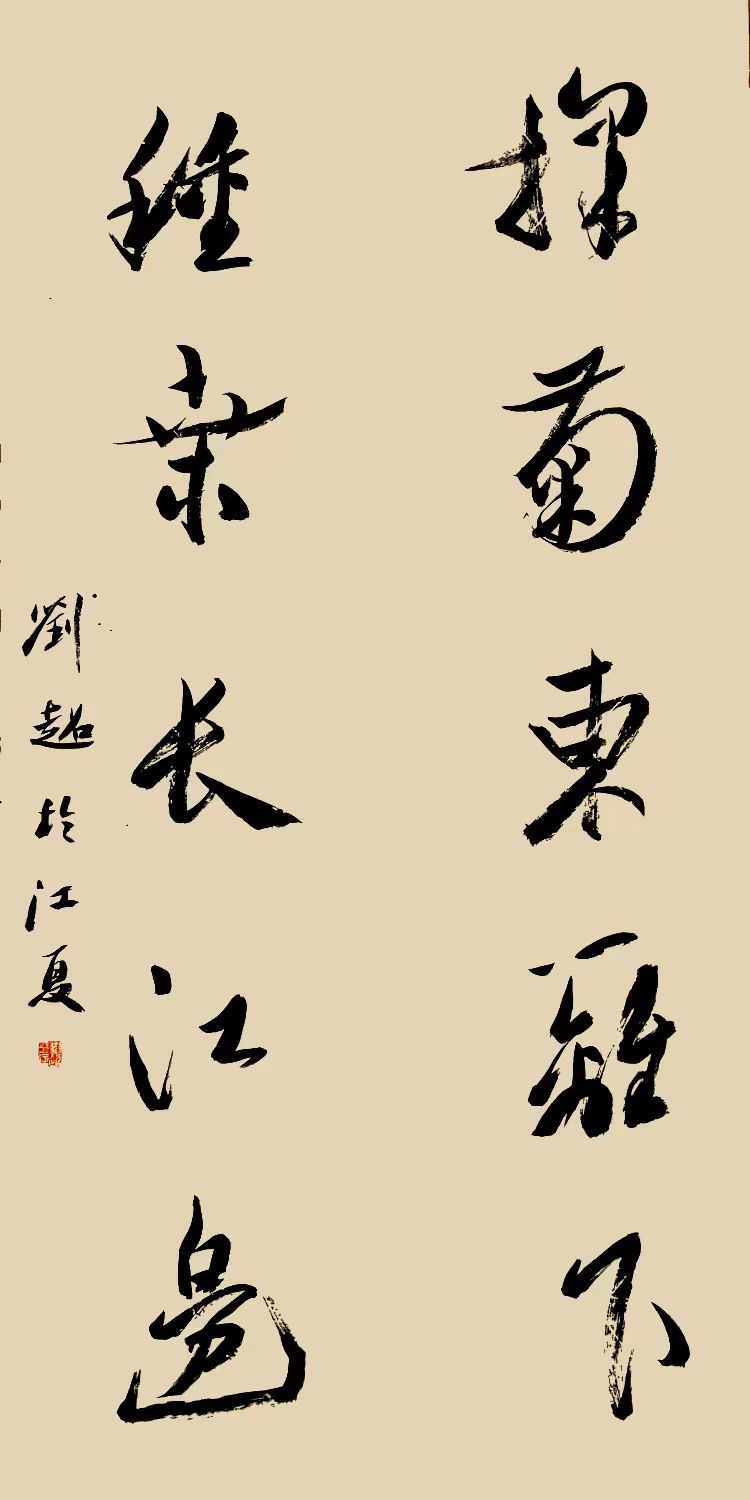 採菊東籬下
種桑长江邊
劉超於江夏